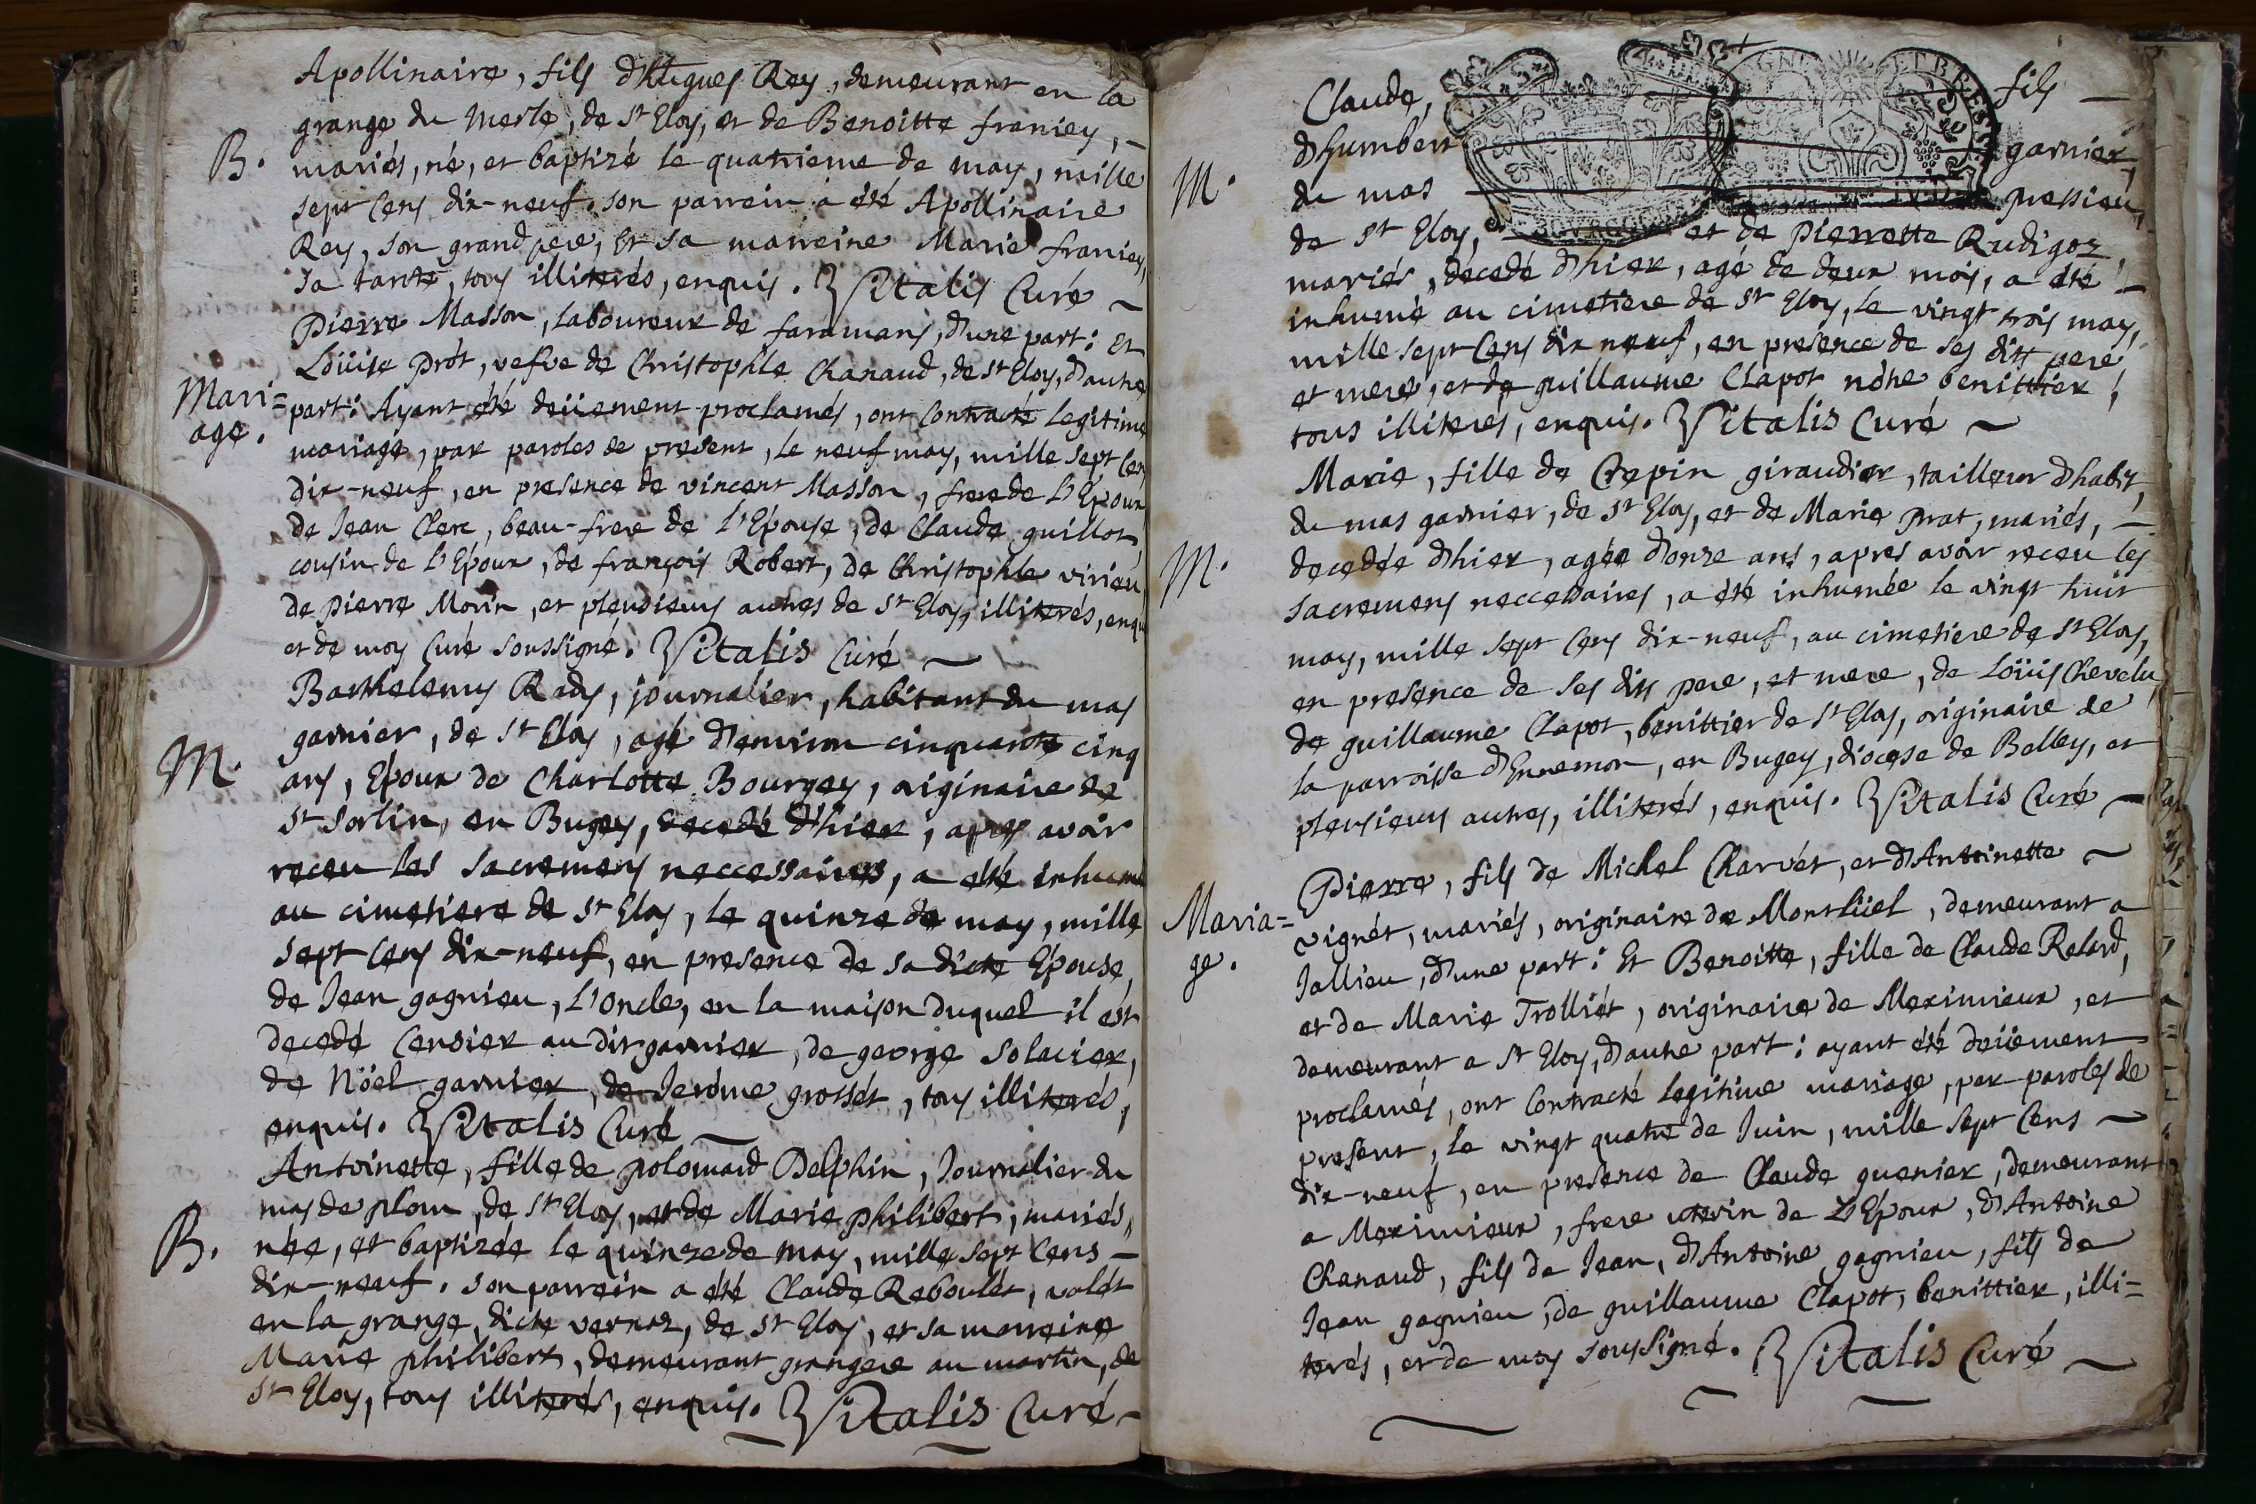 Apollinaire, fils d'Hugues Rey, demeurant en la
grange du Merle, de St Eloy, et de Benoitte franiey, –
B. mariés, né, et baptizé le quatrieme de may, mille
sept Cens dix-neuf. son parrein a été Apollinaire
Rey, son grand pere, Et sa marreine Marie franiey,
sa tante, tous illiterés, enquis. Vitalis Curé ~
Pierre Masson, laboureur de faramans, d'une part: Et
Loüise Prót, vefve de Christophle Chanaud, de St Eloy, d'autre
Mari=
age.
part: Ayant été deüement proclamés, ont contracté legitime
mariage, par paroles de present, le neuf may, mille sept Cens
dix-neuf, en presence de vincent Masson, frere de l'Epoux
de Jean Clerc, beau-frere de l'Epouse, de Claude guillot
cousin de l'Epoux, de françois Robert, de Christophle virieu
de pierre Morin, et plusieurs autres de St Eloy, illiterés, enqu
et de moy Curé soussigné. Vitalis Curé ~
Barthelemy Rady, journalier, habitant du mas
M. garnier, de St Eloy, agé d'environ cinquante cinq
ans, Epoux de Charlotte Bourgey, originaire de
St Sorlin, en Bugey, decedé d'hier, apres avoir
receu les sacremens neccessaires, a eté inhumé
au cimetiere de St Eloy, le quinze de may, mille
sept Cens dix-neuf, en presence de sa dicte Epouse,
de Jean gagnieu, l'oncle, en la maison duquel il est
decedé Censier au dit garnier, de george solacier,
de Nöel garnier, de Jerôme grossét, tous illiterés,
enquis. Vitalis Curé ~
Antoinette, fille de polomard Delphin, Journalier du
mas de plom, de St Eloy, et de Marie philibert, mariés,
B. née, et baptizée le quinze de may, mille sept Cens –
dix-neuf. son parrein a été Claude Reboulét, valét
en la grange, dicte vernaz, de St Eloy, et sa marreine
Marie philibert, demeurant grangere au martin, de
St Eloy, tous illiterés, enquis. Vitalis Curé ~
Claude, fils –
d'humbert garnier,
M. du mas pressieu,
de St Eloy, et de pierrette Rudigoz,
mariés, décedé d'hier, agé de deux mois, a été –
inhumé au cimetiere de St Eloy, le vingt trois may,
mille sept Cens dix neuf, en présence de ses dits pere
et mere, et de guillaume Clapot nôtre benittier,
tous illiterés, enquis. Vitalis Curé ~
Marie, fille de Crepin giraudier, tailleur d'habit,
du mas garnier, de St Eloy, et de Marie prat, mariés, –
M. decedée d'hier, agée d'onze ans, apres avoir receu les
sacremens neccessaires, a été inhumée le vingt huit
may, mille sept Cens dix-neuf, au cimetiere de St Eloy,
en presence de ses dits pere, et mere, de Loüis Chevelu,
de guillaume Clapot, benittier de St Eloy, originaire de
la parroisse d'Ennemon, en Bugey, diocese de Belley, et
plusieurs autres, illiterés, enquis. Vitalis Curé ~
Pierre, fils de Michel Charvét, et d'Antoinette ~
Maria=
ge.
vignét, mariés, originaire de Montlüel, demeurant a
Jallieu, d'une part: Et Benoitte, fille de Claude Relard,
et de Marie Trolliét, originaire de Meximieux, et
demeurant a St Eloy, d'autre part: ayant été deüement
proclamés, ont Contracté legitime mariage, par paroles de
present, le vingt quatre de Juin, mille sept Cens ~
dix-neuf, en presence de Claude guenier, demeurant
a Meximieux, frere uterin de L'Epoux, d'Antoine
Chanaud, fils de Jean, d'Antoine gagnieu, fils de
Jean gagnieu, de guillaume Clapot, benittier, illi=
terés, et de moy soussigné. Vitalis Curé ~